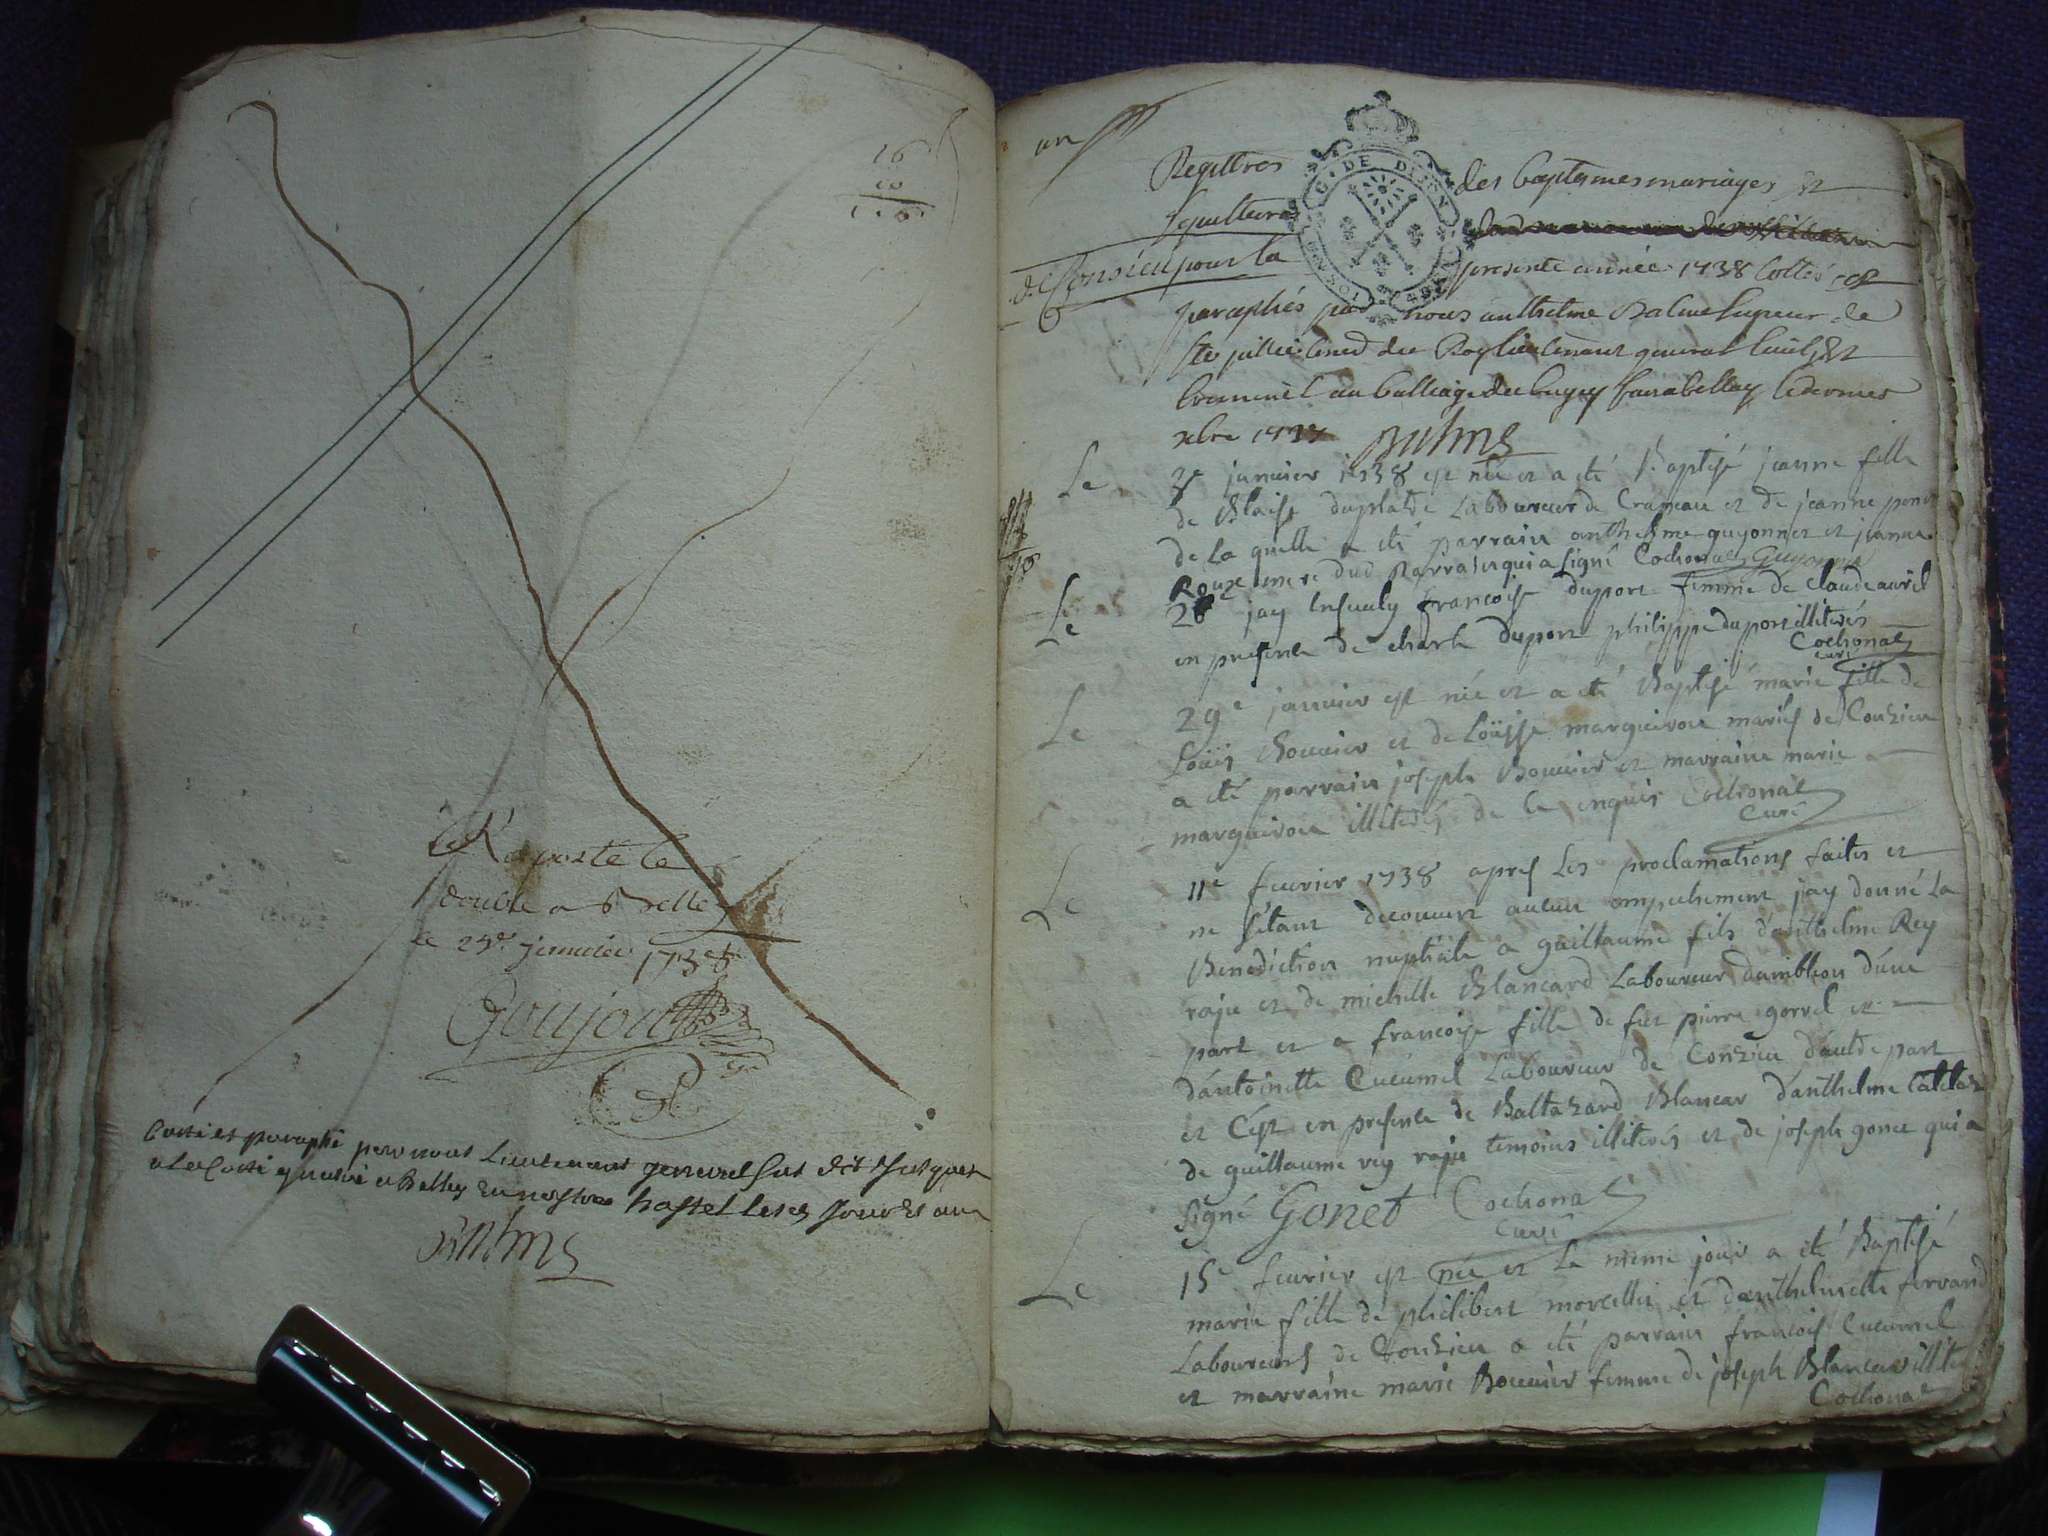 16
10
Raporté le
double a Belley
ce 29e janvier 1738
Goujon
Cotté et paraphé par nous Lieutenant general
a Belley en nostre hostel
Balme
un
Registres des baptesmes mariages et
sepultures
de Conzieu pour la presente année 1738 Cottés et
paraphés par nous anthelme Balme seigneur de
Ste jullie Coner du Roy lieutenant general Civil et
Criminel au balliage du bugey fait a belley le dernier
xbre 1737 Balme
Le 3e janvier 1738 est née et a été Baptisé jeanne fille
de Blaise duplatre Laboureur de Crapeau et de jeanne
de La quelle a été parrain anthelme guyonnet et jeanne
Roux mere dud parrain qui a signé Cochonat Guyonnet
Le 28 jay Ensevely françoise duport femme de claude
en presence de charle duport philippe duport illiterés
Cochonat
curé
Le 29e janvier est née et a été Baptisé marie fille de
Loüis Bouvier et de Loüise marguiron mariés de Conzieu
a été parrain joseph Bouvier et marraine marie
marguiron illiterés de ce enquis Cochonat
Curé
Le 11e fevrier 1738 apres Les proclamations faites et
ne sétant decouvert aucun empechement jay donné La
Benediction nuptiale a guillaume fils d'anthelme Rey
rajie et de michelle Blancard Laboureur dambleon d'une
part et a françoise fille de fut pierre gorrel et
d'antoinette Cucumel Laboureur de Conzieu d'autde part
et C'ést en presence de Baltazard Blancar d'anthelme
de guillaume rey rajie temoins illiterés et de joseph gonet qui a
signé Gonet Cochonat
Curé
Le 15e fevrier est née et Le meme jour a été Baptisé
marie fille de philibert morcellet et d'anthelmette ferrand
Laboureurs de Conzieu a été parrain françois Cucumel
et marraine marie Bouvier femme de joseph Blancar
Cochonat